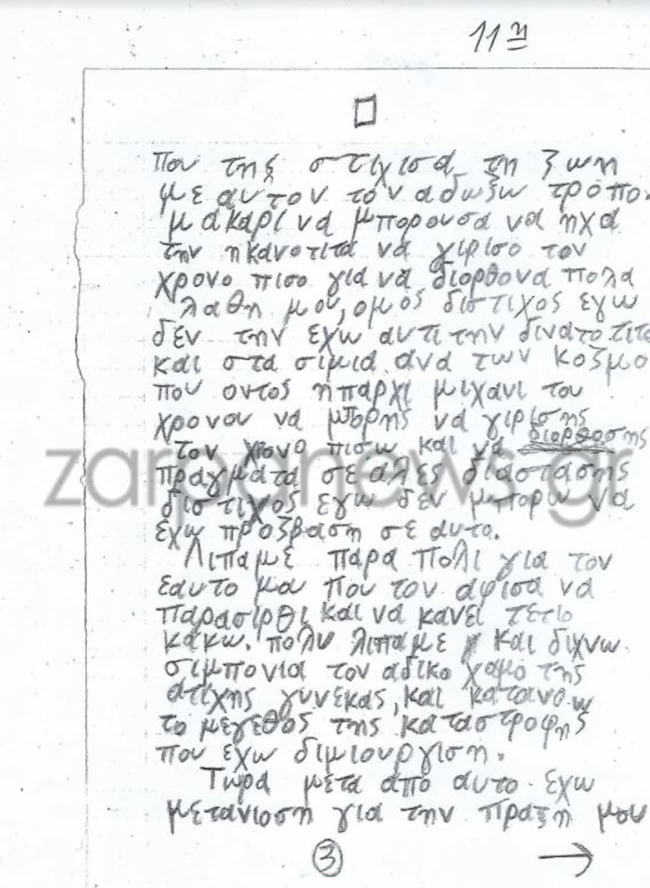 11η
που της στιχισα τη ζωη
με αυτον τον αδωξω τροπο
μακαρι να μπορουσα να ηχα
την ηκανοτιτα να γιρισο τον
χρονο πισο για να διορθονα πολα
λαθη μου, ομος διστιχος εγω
δεν την εχω αυτι την δινατοτιτα
και στα σιμια ανα των κοζμο
που οντος ηπαρχι μιχανι του
χρονου να μπορης να γιρισης
τον χρονο πισω και να διορθοσης
πραγματα σε αλες διαστασης
διστιχος εγω δεν μπορω να
εχω προζβαση σε αυτο.
Λιπαμε παρα πολι για τον
εαυτο μου που τον αφισα να
παρασιρθι και να κανει τετιο
κακω. πολυ λιπαμε και διχνω
σιμπονια τον αδικο χαμο της
ατιχης γυνεκας, και κατανοω
το μεγεθος της καταστροφης
που εχω διμιουργιση.
Τωρα μετα απο αυτο εχω
μετανιοση για την πραξη μου
3 →
zarpanews.gr